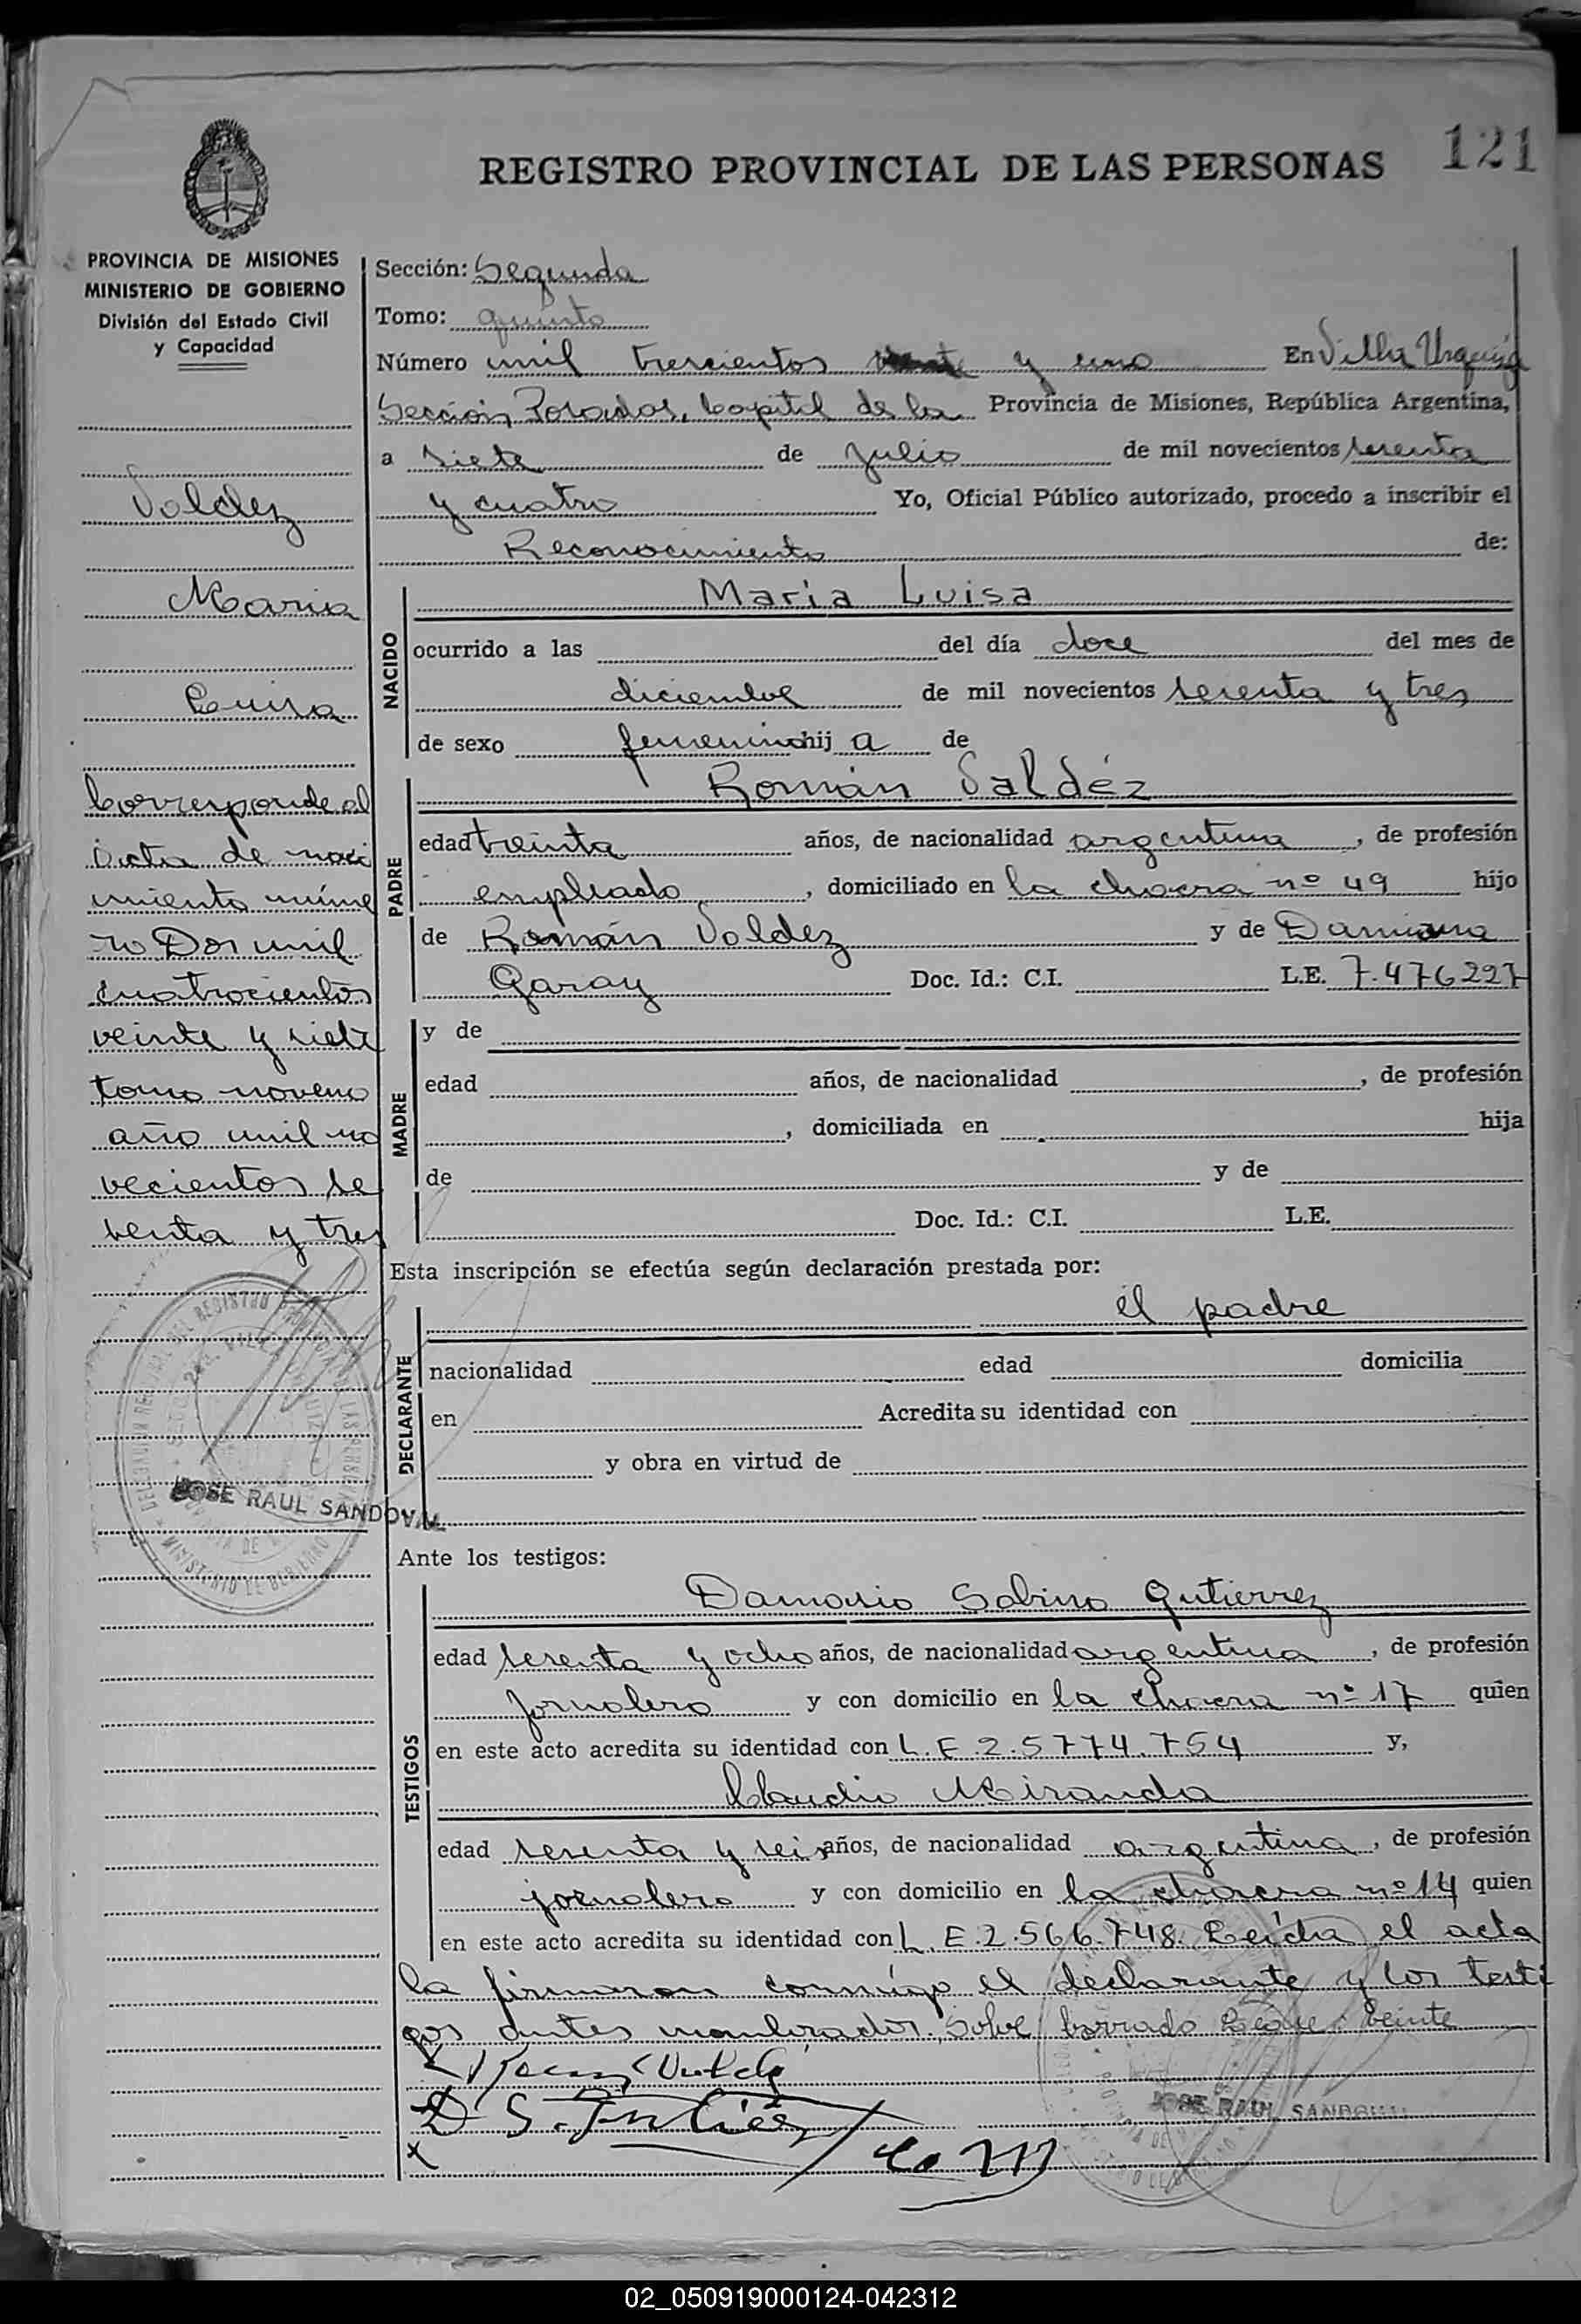 REGISTRO PROVINCIAL DE LAS PERSONAS
121
PROVINCIA DE MISIONES
MINISTERIO DE GOBIERNO
División del Estado Civil
y Capacidad
Valdez
Maria
Luisa
Corresponde al
Acta de naci
miento núme
ro Dos mil
cuatrocientos
veinte y siete
tomo noveno
año mil no
vecientos se
tenta y tres
JOSE RAUL SANDOVAL
Sección: Segunda
Tomo: quinto
Número mil trescientos veinte y uno En Villa Urquiza
Sección Posadas, Capital de la Provincia de Misiones, República Argentina,
a siete de julio de mil novecientos setenta
y cuatro Yo, Oficial Público autorizado, procedo a inscribir el
Reconocimiento de:
NACIDO
Maria Luisa
ocurrido a las del día doce del mes de
diciembre de mil novecientos setenta y tres
de sexo femenino hij a de
PADRE
Román Valdéz
edad treinta años, de nacionalidad argentina, de profesión
empleado, domiciliado en la chacra nº 49 hijo
de Román Valdez y de Damiana
Garay Doc. Id.: C.I. L.E. 7.476227
MADRE
y de
edad años, de nacionalidad , de profesión
, domiciliada en hija
de y de
Doc. Id.: C.I. L.E.
Esta inscripción se efectúa según declaración prestada por:
DECLARANTE
el padre
nacionalidad edad domicilia
en Acredita su identidad con
y obra en virtud de
Ante los testigos:
TESTIGOS
Damasio Sabino Gutierrez
edad sesenta y ocho años, de nacionalidad argentina, de profesión
jornalero y con domicilio en la chacra nº 17 quien
en este acto acredita su identidad con L.E.2.5774.754 y,
Claudio Miranda
edad sesenta y seis años, de nacionalidad argentina, de profesión
jornalero y con domicilio en la chacra nº 14 quien
en este acto acredita su identidad con L.E.2.566.748. Leída el acta
la firmaron conmigo el declarante y los testi
gos antes nombrados. Sobre borrado Léase: veinte
D S. Gutiérrez
JOSE RAUL SANDOVAL
02_050919000124-042312